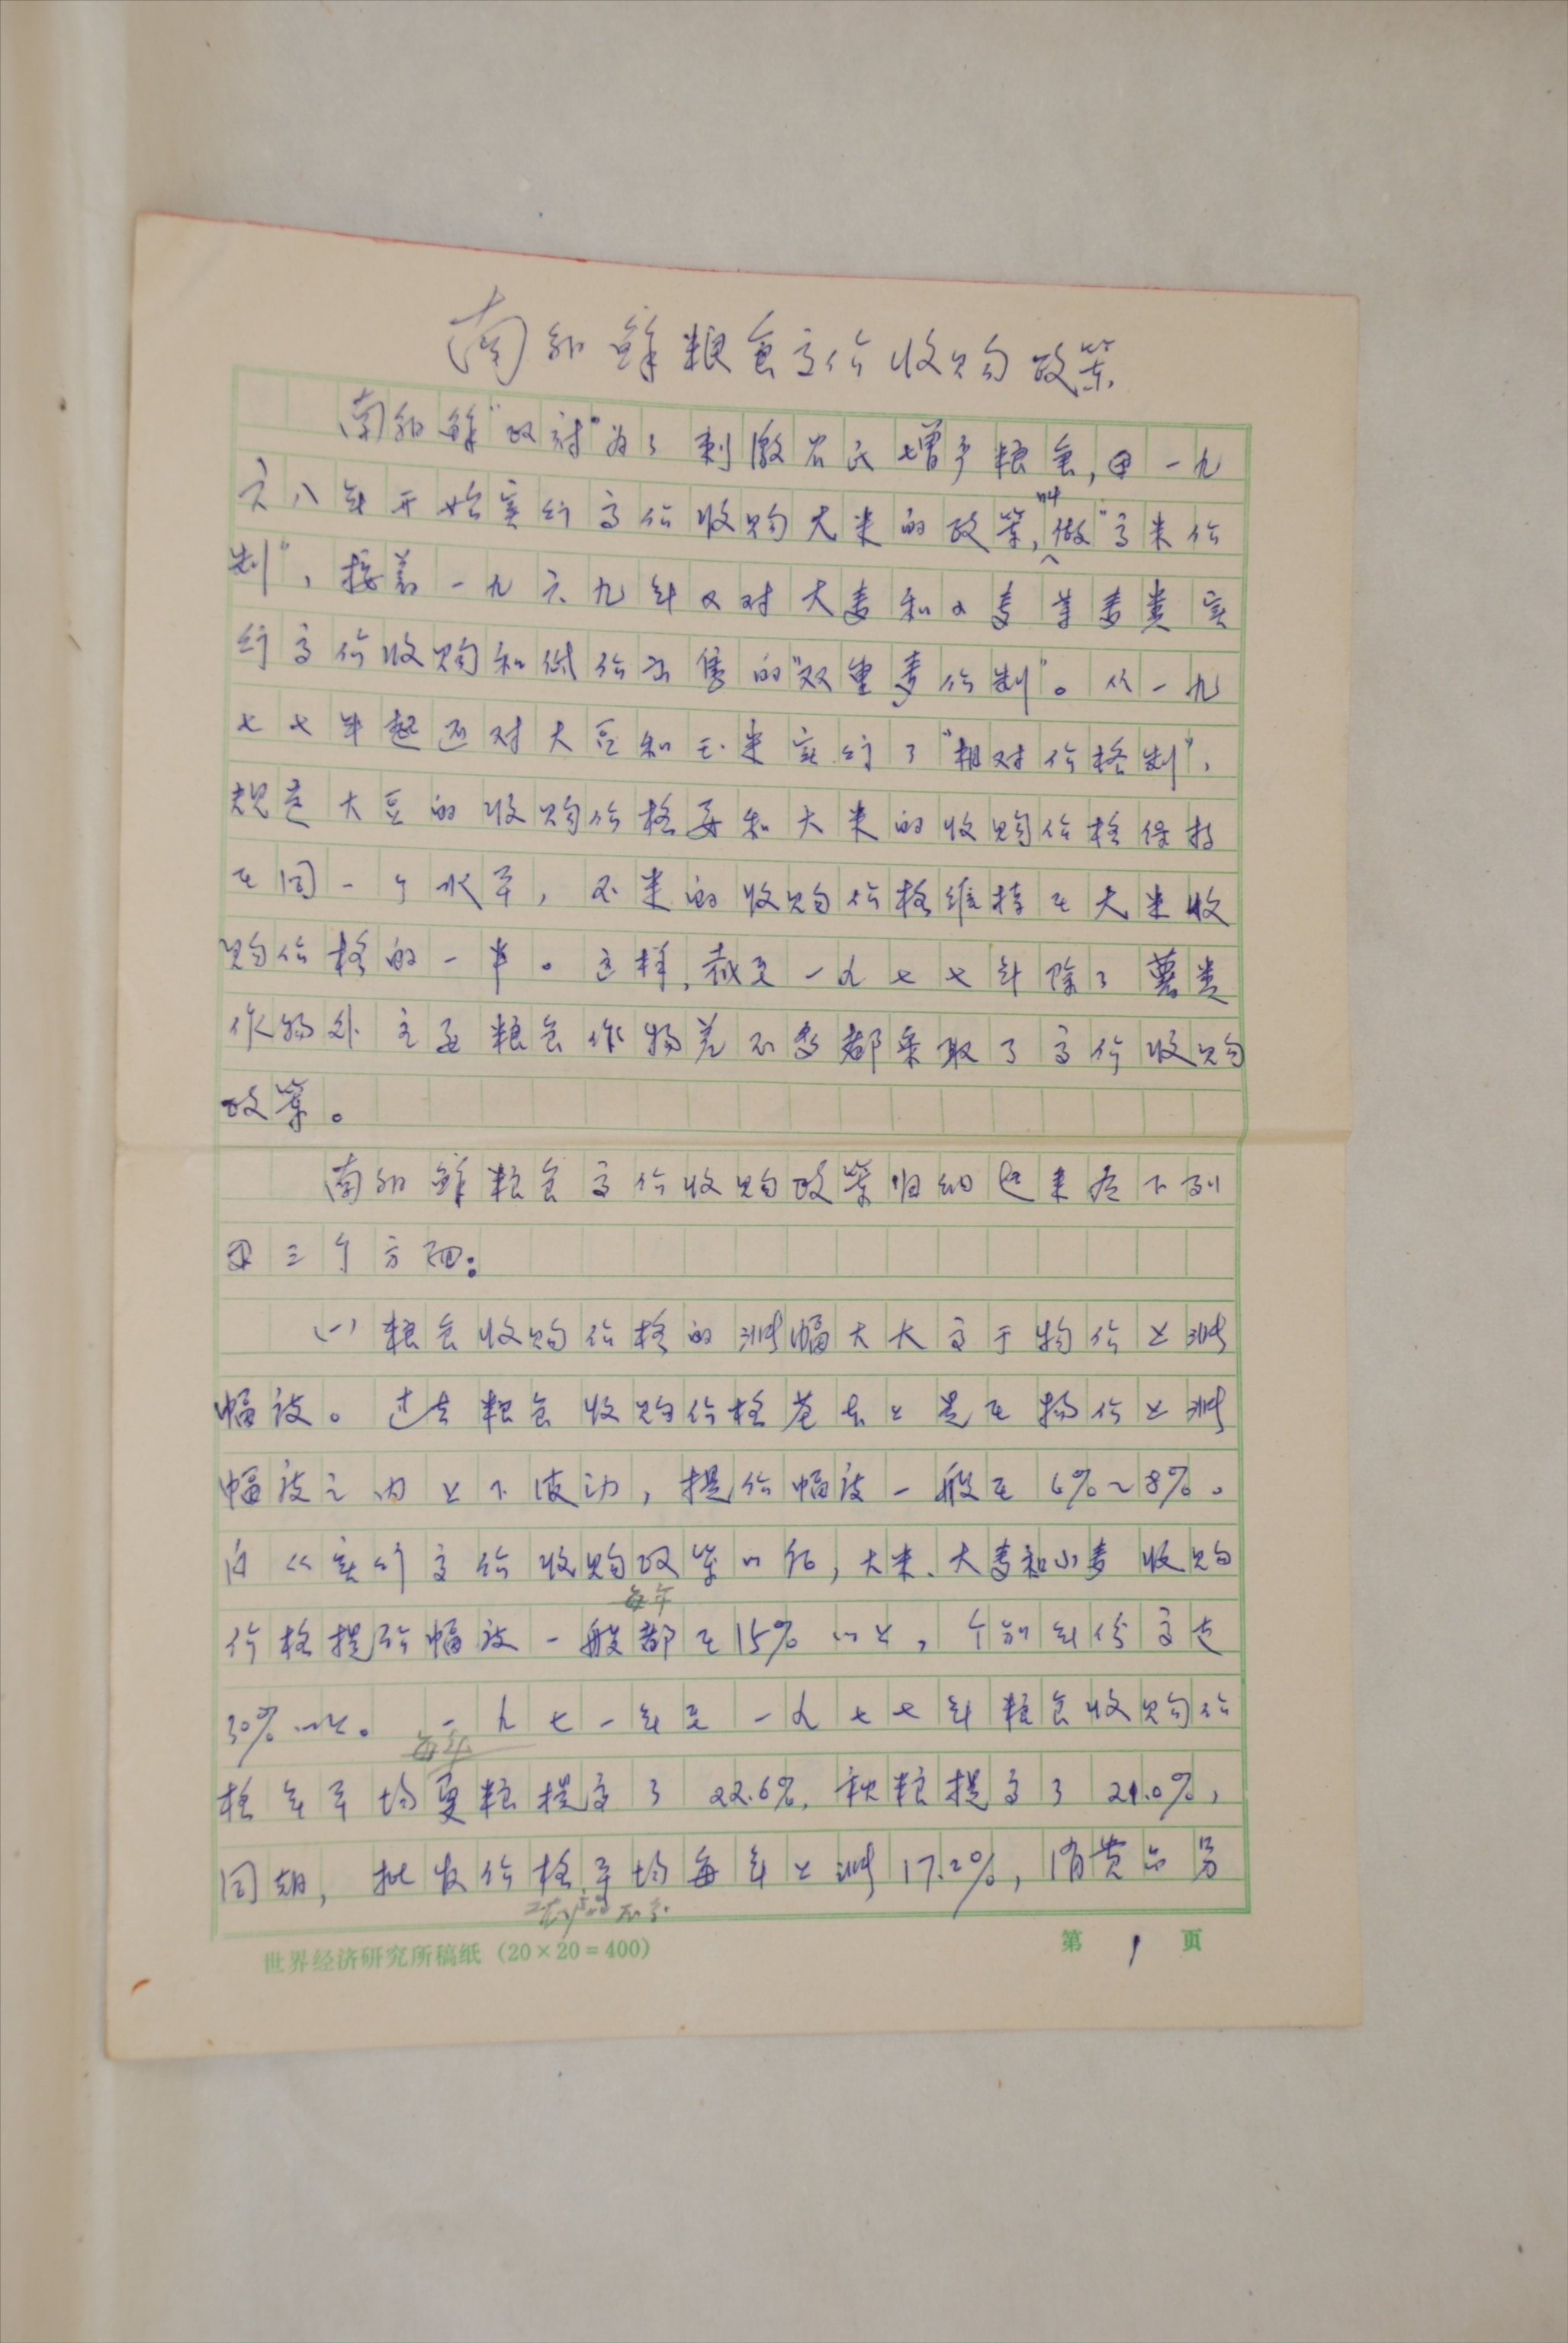 南朝鲜粮食高价收购政策
南朝鲜"政府"为了刺激农民增产粮食，由一九
六八年开始实行高价收购大米的政策，叫做"高米价
制"，接着一九六九年又对大麦和小麦等麦类实
行高价收购和低价出售的"双重麦价制"。从一九
七七年起还对大豆和玉米实行了"相对价格制"，
规定大豆的收购价格要和大米的收购价格保持
在同一个水平，玉米的收购价格维持在大米收
购价格的一半。这样，截至一九七七年除了薯类
作物外主要粮食作物差不多都采取了高价收购
政策。
南朝鲜粮食高价收购政策归纳起来有下列
三个方面：
(一)粮食收购价格的涨幅大大高于物价上涨
幅度。过去粮食收购价格基本上是在物价上涨
幅度之内上下波动，提价幅度一般在6%～8%。
自从实行高价收购政策以后，大米、大麦和小麦收购
每年
价格提价幅度一般都在15%以上，个别年份高达
30%以上。一九七一年至一九七七年粮食收购价
每年
格年平均夏粮提高了22.6%，秋粮提高了21.0%，
同期，批发价格平均每年上涨17.2%，消费品
世界经济研究所稿纸（20×20=400）
第1页